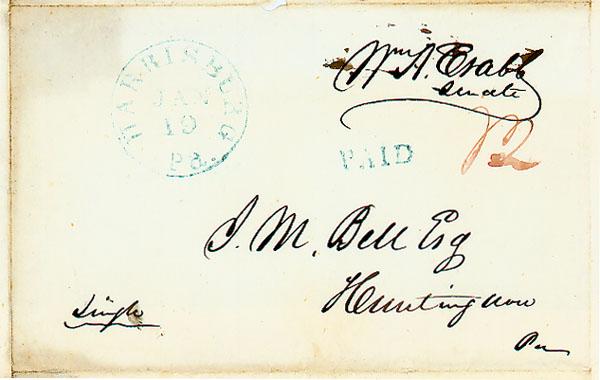 HARRISBURG Pa.
JAN
19
Wm. A. Crabb
Senate
PAID
12
J. M. Bell Esq
Huntingdon
Pa
Single